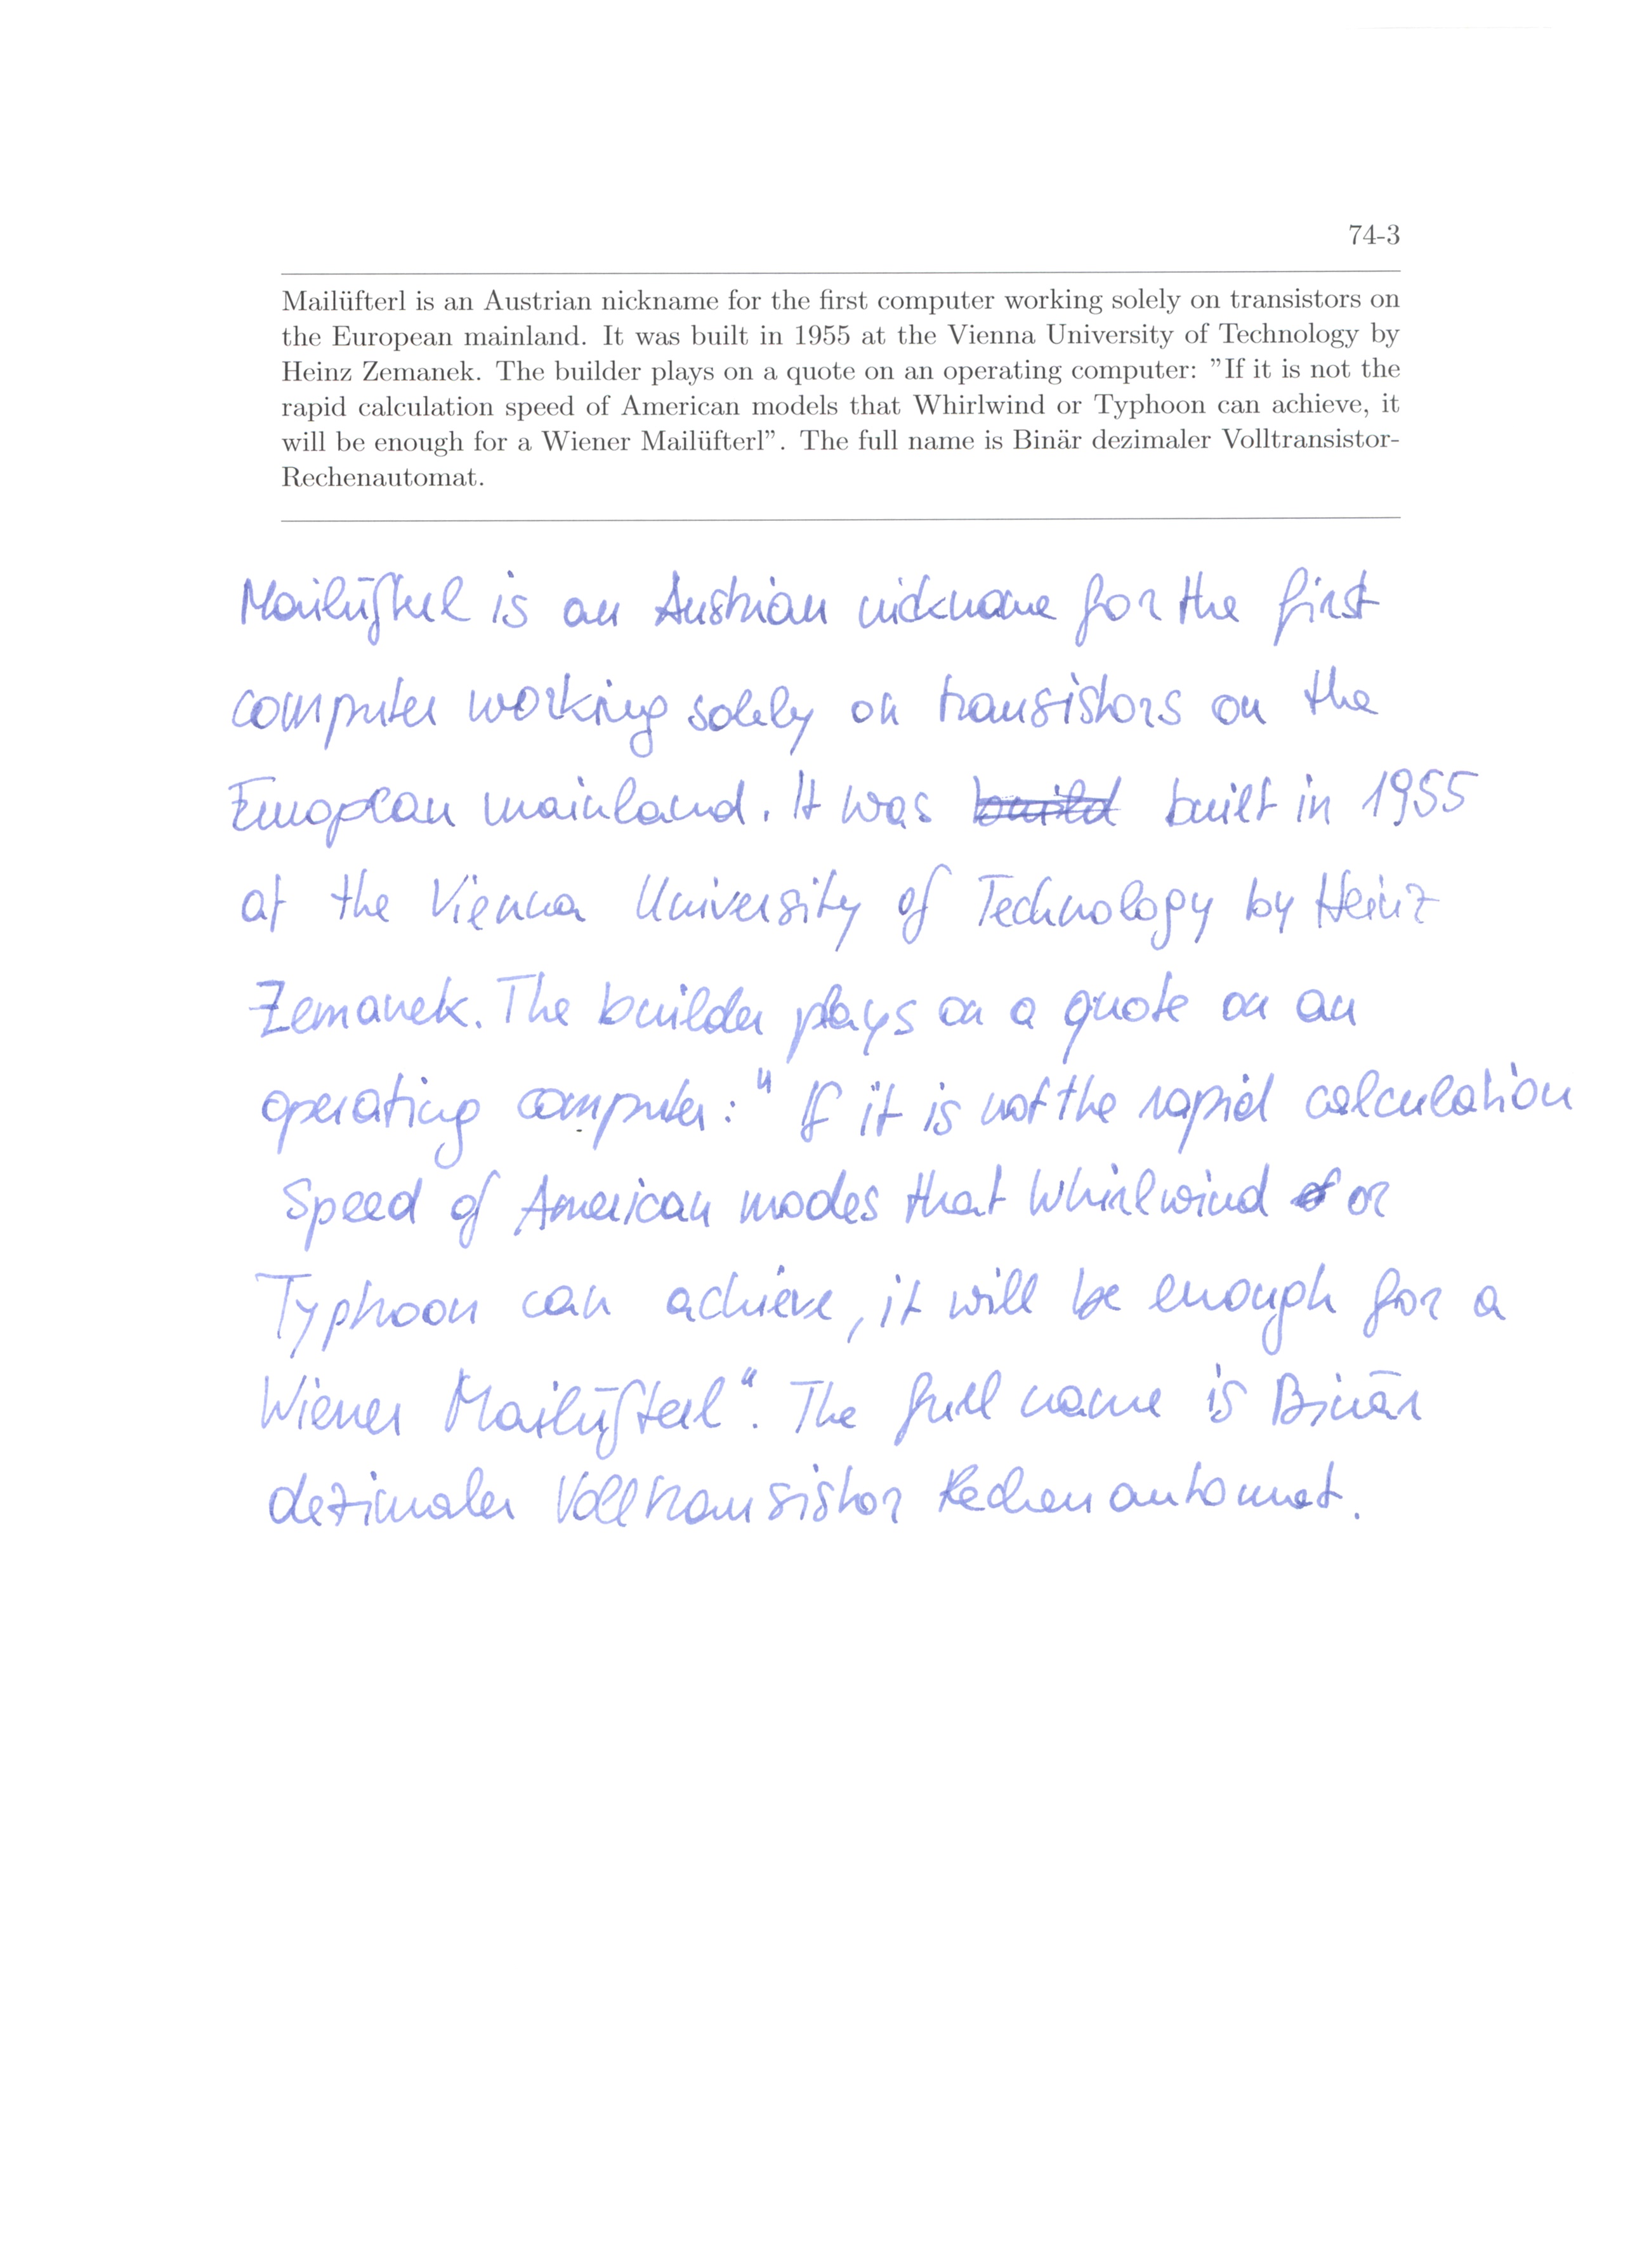 74-3
Mailüfterl is an Austrian nickname for the first computer working solely on transistors on
the European mainland. It was built in 1955 at the Vienna University of Technology by
Heinz Zemanek. The builder plays on a quote on an operating computer: ”If it is not the
rapid calculation speed of American models that Whirlwind or Typhoon can achieve, it
will be enough for a Wiener Mailüfterl”. The full name is Binär dezimaler Volltransistor-
Rechenautomat.
Mailüfterl is an Austrian nickname for the first
computer working solely on transistors on the
European mainland. It was build built in 1955
at the Vienna University of Technology by Heinz
Zemanek. The builder plays on a quote on an
operating computer: " If it is not the rapid calculation
Speed of American modes that Whirlwind or
Typhoon can achieve, it will be enough for a
Wiener Mailüfterl". The full name is Binär
dezimaler Volltransistor Rechenautomat.